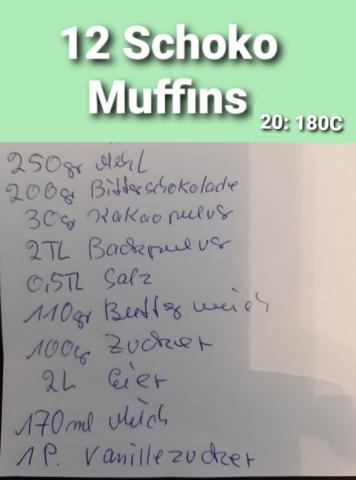 12 Schoko
Muffins
20: 180C
250gr Mehl
200g Bitterschokolade
30g Kakaopulver
2TL Backpulver
0,5TL Salz
110gr Butter weich
100g Zucker
2L Eier
170ml Milch
1P. Vanillezucker